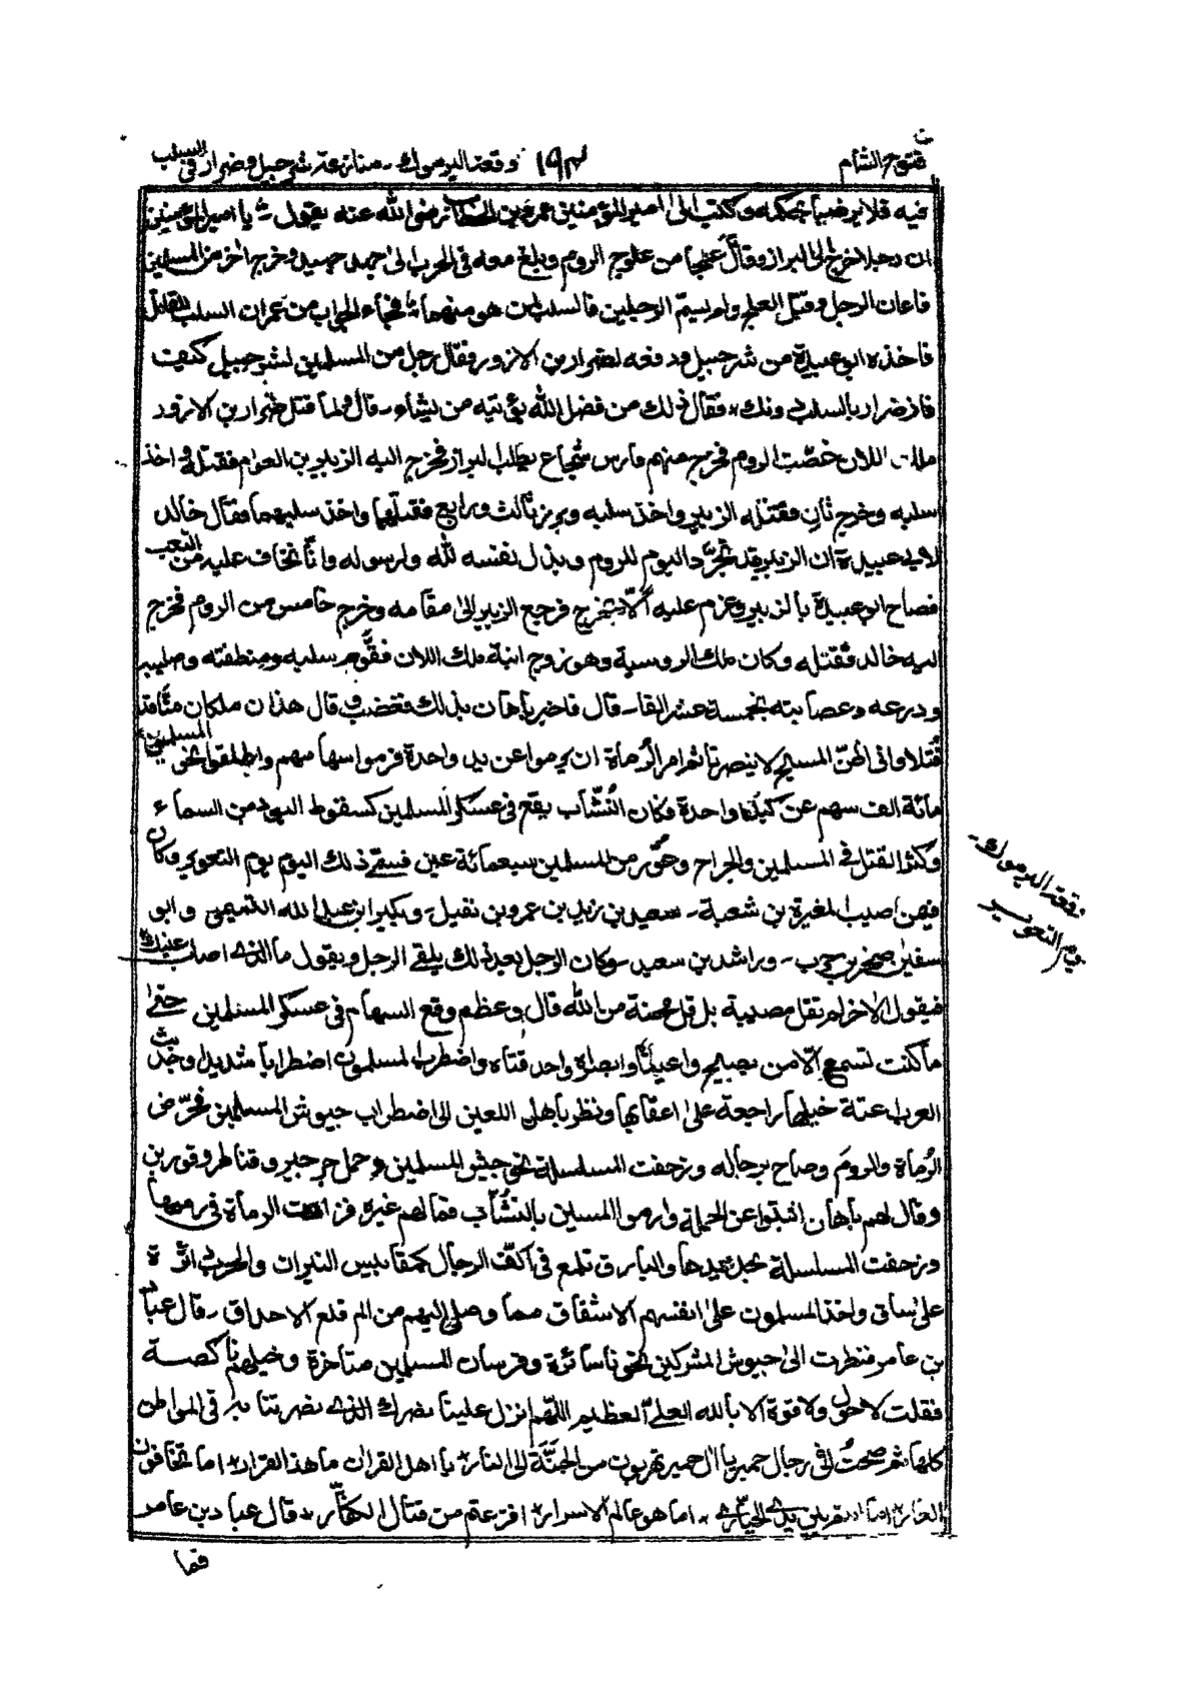 فتوح الشام
وقعة اليرموك ـ منازعة شرحبيل وضرار في السلب
فيه فلا يرضيا بحكمه وكتب الى امير المؤمنين عمر بن الخطاب رضي الله عنه يقول يا امير المؤمنين
ان رجلا خرج الى البراز وقاتل علجا من علوج الروم وبلغ معه في الحرب الى اجهد جهيد وخرج اخر من المسلمين
فاعان الرجل وقتل العلج ولم يسم الرجلين فالسلب لمن هو منهما فجاء الجواب من عمر ان السلب للقاتل
فاخذه ابو عبيدة من شرحبيل ودفعه لضرار بن الازور فقال رجل من المسلمين لشرحبيل كيف
فاز ضرار بالسلب دونك فقال ذلك من فضل الله يؤتيه من يشاء ـ قال ولما قتل ضرار بن الازور
ملك اللان غضبت الروم فخرج منهم فارس شجاع يطلب البراز فخرج اليه الزبير بن العوام فقتله واخذ
سلبه وخرج ثان فقتله الزبير واخذ سلبه وبرز ثالث ورابع فقتلهما واخذ سلبهما فقال خالد
لابي عبيدة ان الزبير قد تجرد اليوم للروم وبذل نفسه لله ولرسوله وانا نخاف عليه من التعب
فصاح ابو عبيدة بالزبير وعزم عليه الا يخرج فرجع الزبير الى مقامه وخرج خامس من الروم فخرج
اليه خالد فقتله وكان ملك الروسية وهو زوج ابنة ملك اللان فقوم سلبه ومنطقته وصليبه
ودرعه وعصابته بخمسة عشر الفا ـ قال فاخبر باهان بذلك فغضب وقال هذان ملكان منا قد
قتلا واني اظن المسيح لا ينصرنا ثم امر الرماة ان يرموا عن يد واحدة فرموا سهامهم واطلقوا نحو المسلمين
مائة الف سهم عن كبد واحدة وكان النشاب يقع في عسكر المسلمين كسقوط البرد من السماء
وكثر القتل في المسلمين والجراح وعور من المسلمين سبعمائة عين فسمي ذلك اليوم يوم التعوير وكان
فيمن اصيب المغيرة بن شعبة ـ سعيد بن زيد بن عمرو بن نفيل ـ وبكير ابن عبد الله التميمي وابو
سفين صخر بن حرب ـ وراشد بن سعيد ـ وكان الرجل بعد ذلك يلقي الرجل ويقول ما الذي اصاب عينك
فيقول الاخر لم تقل مصيبة بل قل محنة من الله قال وعظم وقع السهام في عسكر المسلمين حتى
ما كنت تسمع الا من يصيح واعيناه وابصراه واحدقتاه واضطرب المسلمون اضطرابا شديدا وجذبت
العرب اعنة خيلها راجعة على اعقابها ونظر باهان اللعين الى اضطراب جيوش المسلمين فحرض
الرماة والروم وصاح برجاله وزحفت المسلسلة نحو جيش المسلمين وحمل جرجير وقناطر وقورين
وقال لهم باهان اثبتوا عن الحملة وارموا المسلمين بالنشاب فما لهم غيره فزادت الرماة في رميها
وزحفت المسلسلة بحديدها والبيارق تلمع في اكف الرجال كمقابيس النيران والحرب دائرة
على ساق واخذ المسلمون على انفسهم الاشفاق مما وصل اليهم من الم قلع الاحداق ـ قال عباد
بن عامر فنظرت الى جيوش المشركين نحونا سائرة وفرسان المسلمين متاخرة وخيلهم ناكصة
فقلت لا حول ولا قوة الا بالله العلي العظيم اللهم انزل علينا نصرك الذي نصرتنا به في المواطن
كلها ثم صحت في رجال حمير يا ال حمير تهربون من الجنة الى النار يا اهل القران ما هذا الفرار اما تخافون
العار اما بين يدي الجبار ـ اما هو عالم الاسرار افزعتم من قتال الكفار ـ قال عباد بن عامر
فما
وقعة اليرموك ـ
يوم التعوير